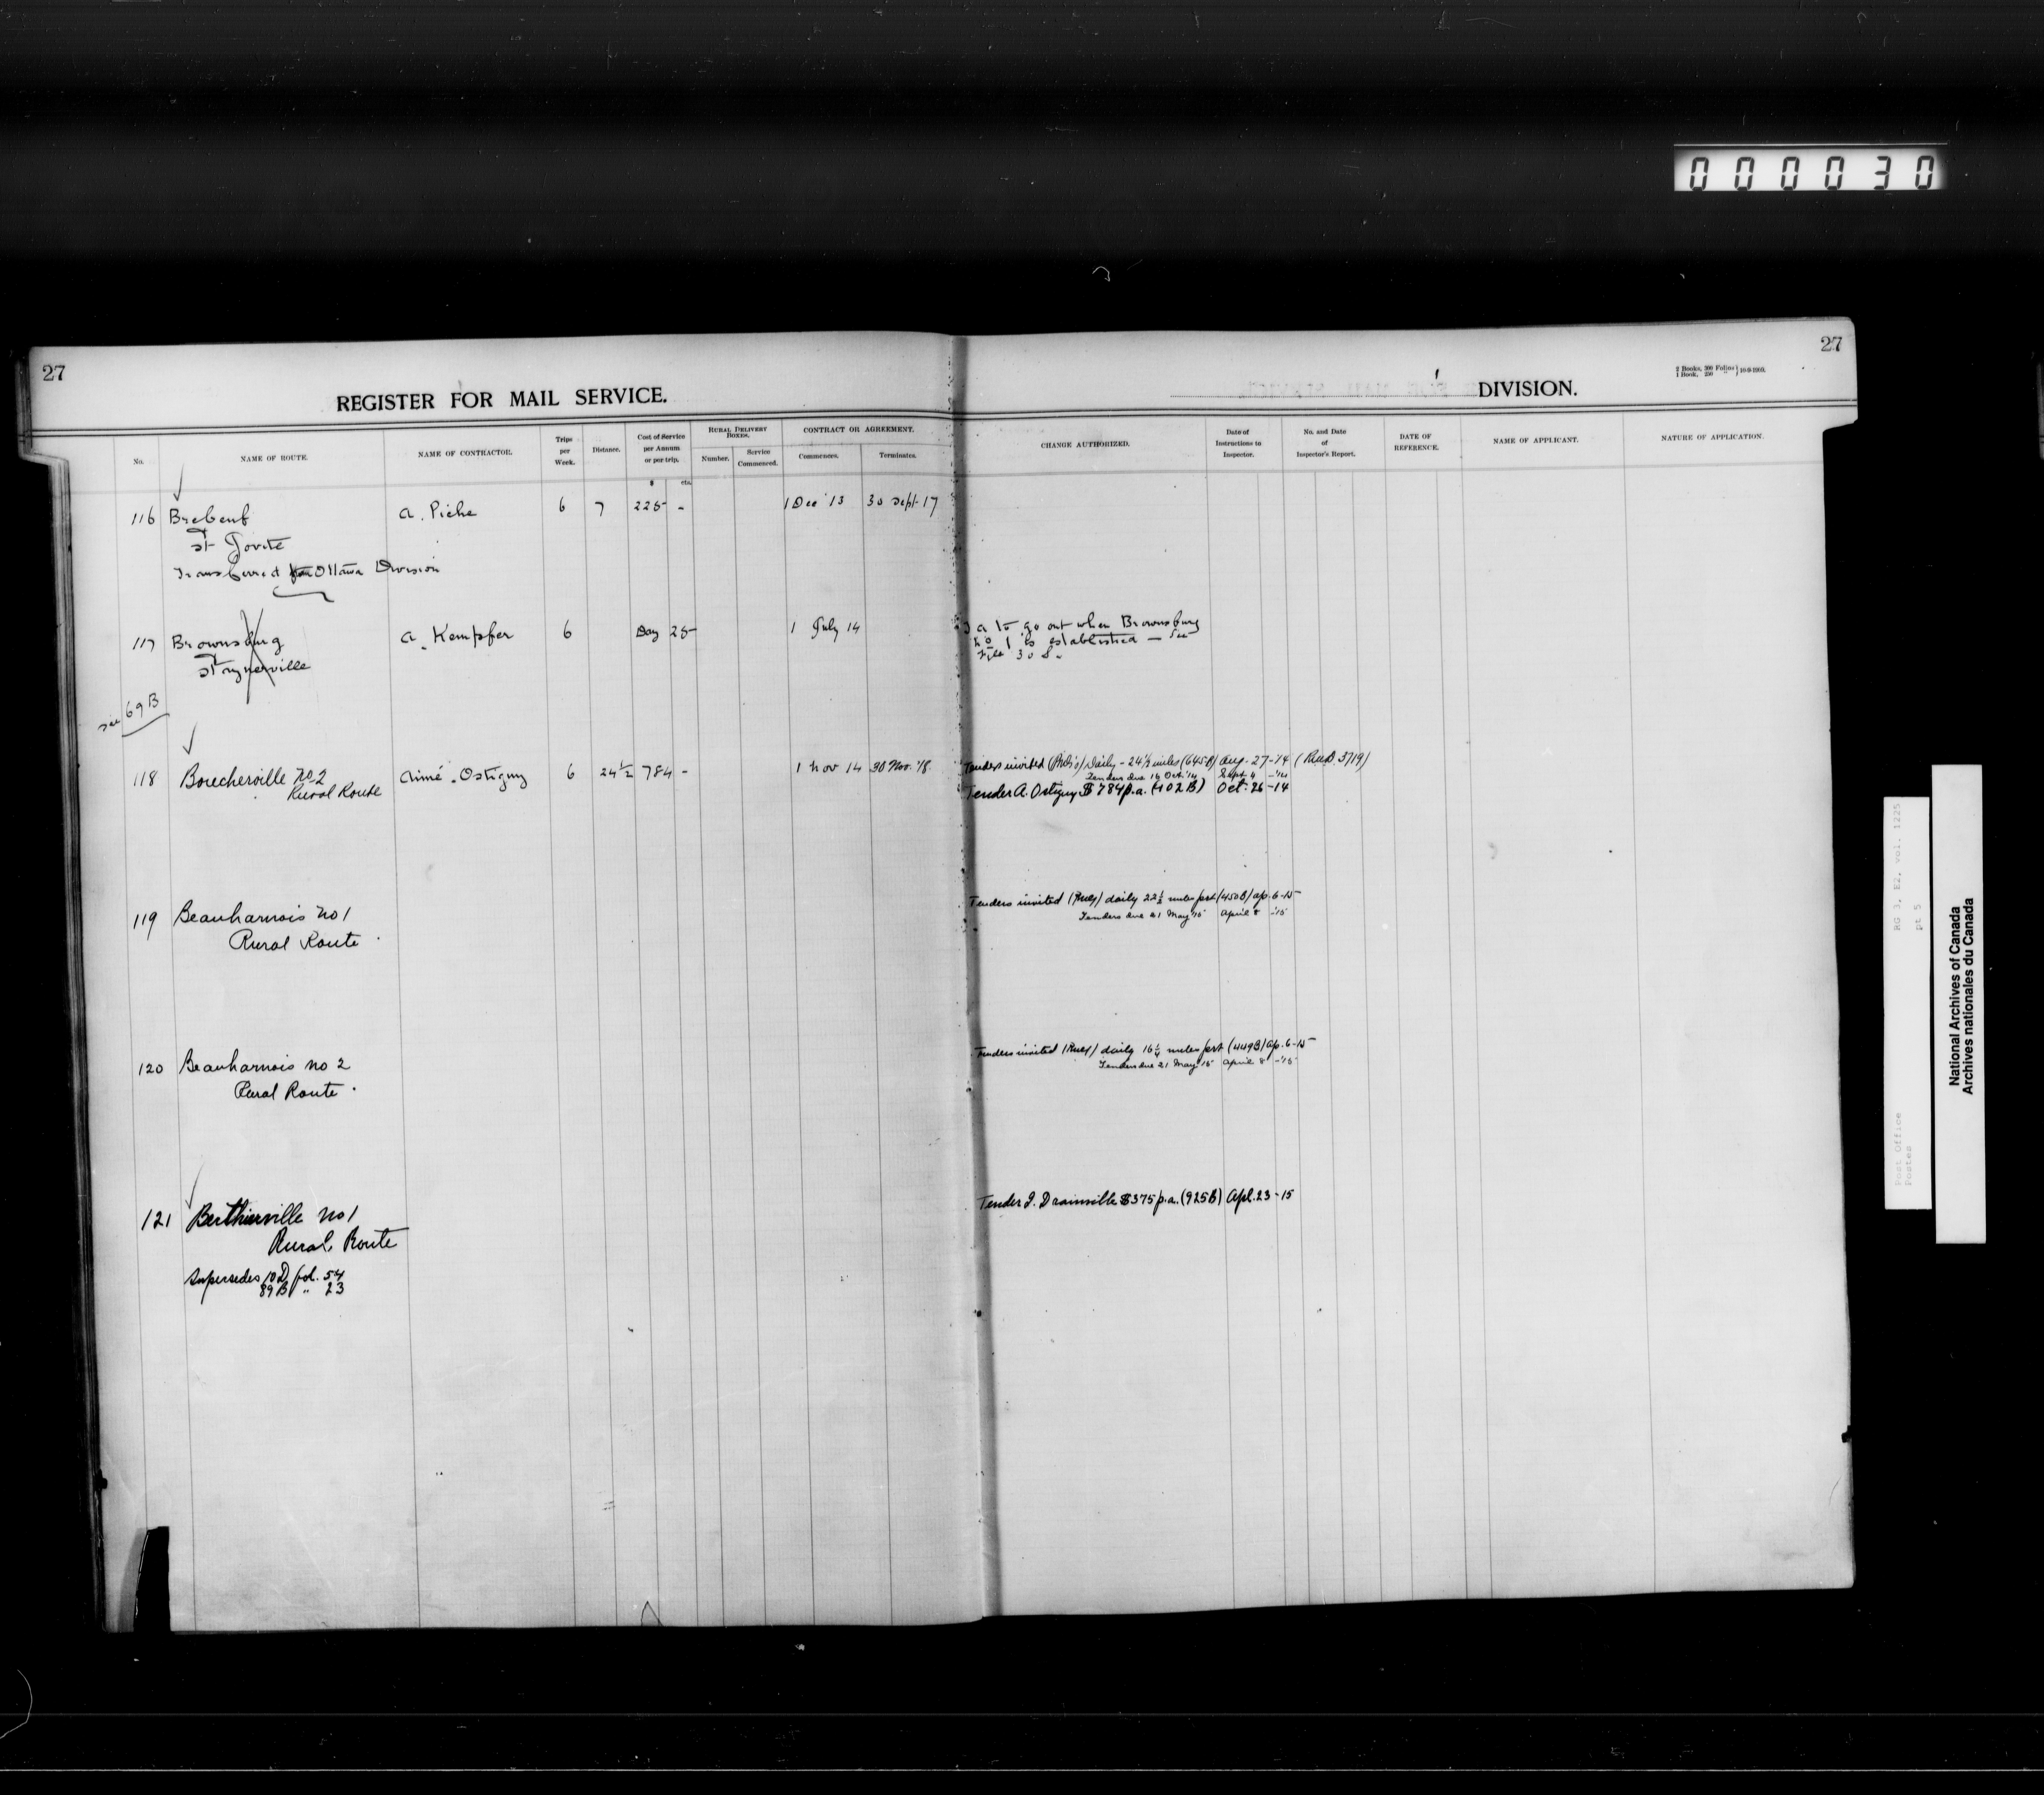 000030
27
27
2 Books, 300 Folios
1 Book, 250 "
10-9-1909.
REGISTER FOR MAIL SERVICE.
DIVISION.
No.
NAME OF ROUTE.
NAME OF CONTRACTOR.
Trips per Week.
Distance.
Cost of Service per Annum or per trip.
$ cts.
RURAL DELIVERY BOXES.
Number.
Service Commenced.
CONTRACT OR AGREEMENT.
Commences.
Terminates.
CHANGE AUTHORIZED.
Date of Instructions to Inspector.
No. and Date of Inspector's Report.
DATE OF REFERENCE.
NAME OF APPLICANT.
NATURE OF APPLICATION.
116 Brebeuf A. Piche 6 7 225 - 1 Dec '13 30 Sept 17
St Jovite
Transferred from Ottawa Division
117 Brownsburg A. Kempfer 6 Day 25 1 July 14
to go out when Brownsburg
No 1 is established — See
File 30 S.
see 69B
118 Boucherville No 2 Aimé Ostiguy 6 24 ½ 784 - 1 Nov 14 30 Nov. '18.
Rural Route
Tenders invited daily - 24½ miles (645B) Aug. 27-14 (R.M.D. 3719)
Tenders due 16 Oct '14 Sept 4 -'14
Tender A. Ostiguy $784 p.a. (402B) Oct. 26-14
119 Beauharnois No 1
Rural Route
Tenders invited daily 22½ miles (450B) Ap. 6-15
Tenders due 21 May '15 April 8 -'15
120 Beauharnois No 2
Rural Route
Tenders invited daily 16¼ miles (449B) Ap. 6-15
Tenders due 21 May '15 April 8 -'15
121 Berthierville No 1
Rural Route
Supersedes 10D fol. 54
89B " 23
Tender J. Drainville $375 p.a. (925B) Apl. 23-15
Post Office RG 3, E2, vol. 1225
Postes pt 5
National Archives of Canada
Archives nationales du Canada